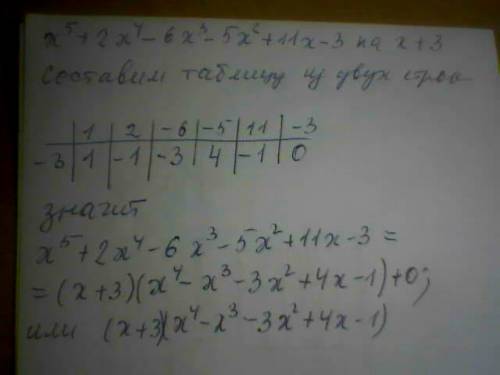 x⁵+2x⁴-6x³-5x²+11x-3 на x+3
Составим таблицу из двух строк
| 1 | 2 | -6 | -5 | 11 | -3
-3 | 1 | -1 | -3 | 4 | -1 | 0
значит
x⁵+2x⁴-6x³-5x²+11x-3=
=(x+3)(x⁴-x³-3x²+4x-1)+0;
или (x+3)(x⁴-x³-3x²+4x-1)